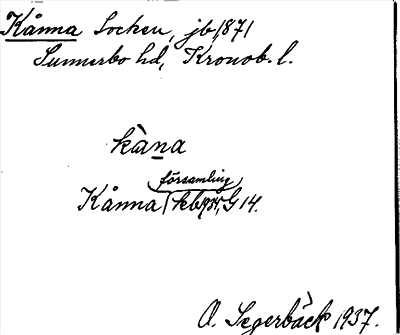 Kånna Socken, jb 1871
Sunnerbo hd, Kronob. l.
kàna
församling
Kånna kb 1931, G 14.
A. Segerbäck 1937.